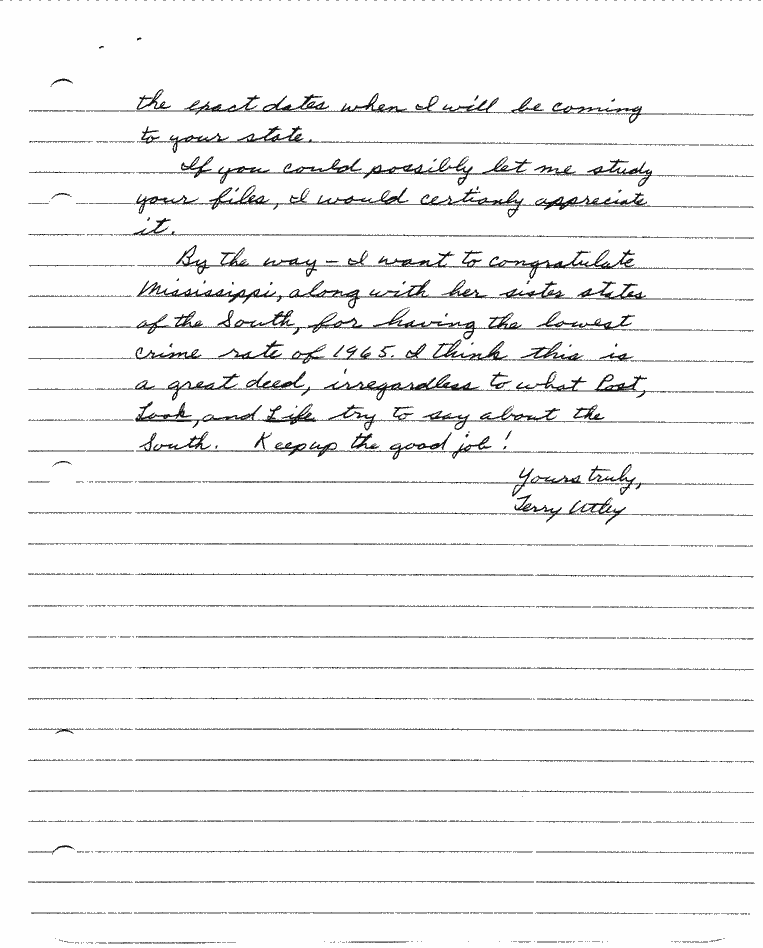 the exact dates when I will be coming
to your state.
If you could possibly let me study
your files, I would certianly appreciate
it.
By the way – I want to congratulate
Mississippi, along with her sister states
of the South, for having the lowest
crime rate of 1965. I think this is
a great deed, irregardless to what Post,
Look, and Life try to say about the
South. Keep up the good job!
Yours truly,
Terry Utley